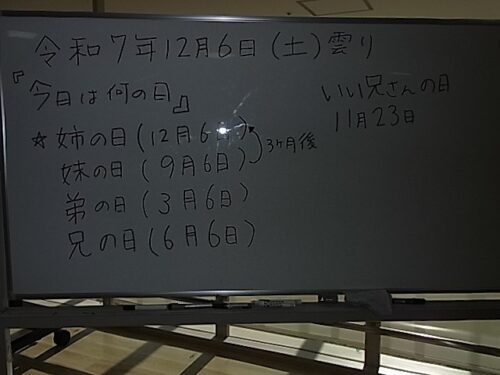 令和7年12月6日(土)雲り
『今日は何の日』
☆姉の日(12月6日)
妹の日(9月6日)
3ヶ月後
弟の日(3月6日)
兄の日(6月6日)
いい兄さんの日
11月23日